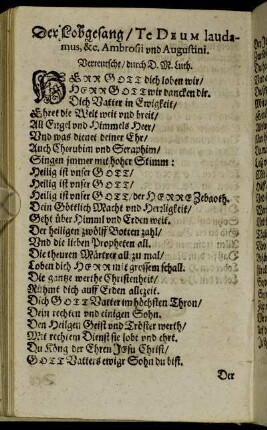 Der Lobgesang / Te Deum lauda-
mus, &c. Ambrosii vnd Augustini.
Verteutscht / durch D. M. Luth.
HERR GOTT dich loben wir /
HERR GOTT wir dancken dir.
Dich Vatter in Ewigkeit /
Ehret die Welt weit vnd breit /
All Engel vnd Himmels Heer /
Vnd was dienet deiner Ehr /
Auch Cherubim vnd Seraphim /
Singen jmmer mit hoher Stimm :
Heilig ist vnser GOTT /
Heilig ist vnser GOTT /
Heilig ist vnser GOTT / der HERRE Zebaoth.
Dein Göttlich Macht vnd Herzligkeit /
Geht vber Himml vnd Erden weit.
Der heiligen zwölff Botten zahl /
Vnd die lieben Propheten all.
Die theuren Märtrer all zu mal /
Loben dich HERR mit grossem schall.
Die gantze werthe Christenheit /
Rühmt dich auff Erden allezeit.
Dich GOTT Vatter im höchsten Thron /
Dein rechten vnd einigen Sohn.
Den Heiligen Geist vnd Tröster werth /
Mit rechtem Dienst sie lobt vnd ehrt.
Du König der Ehren JEsu Christ /
GOTT Vatters ewigr Sohn du bist.
Der